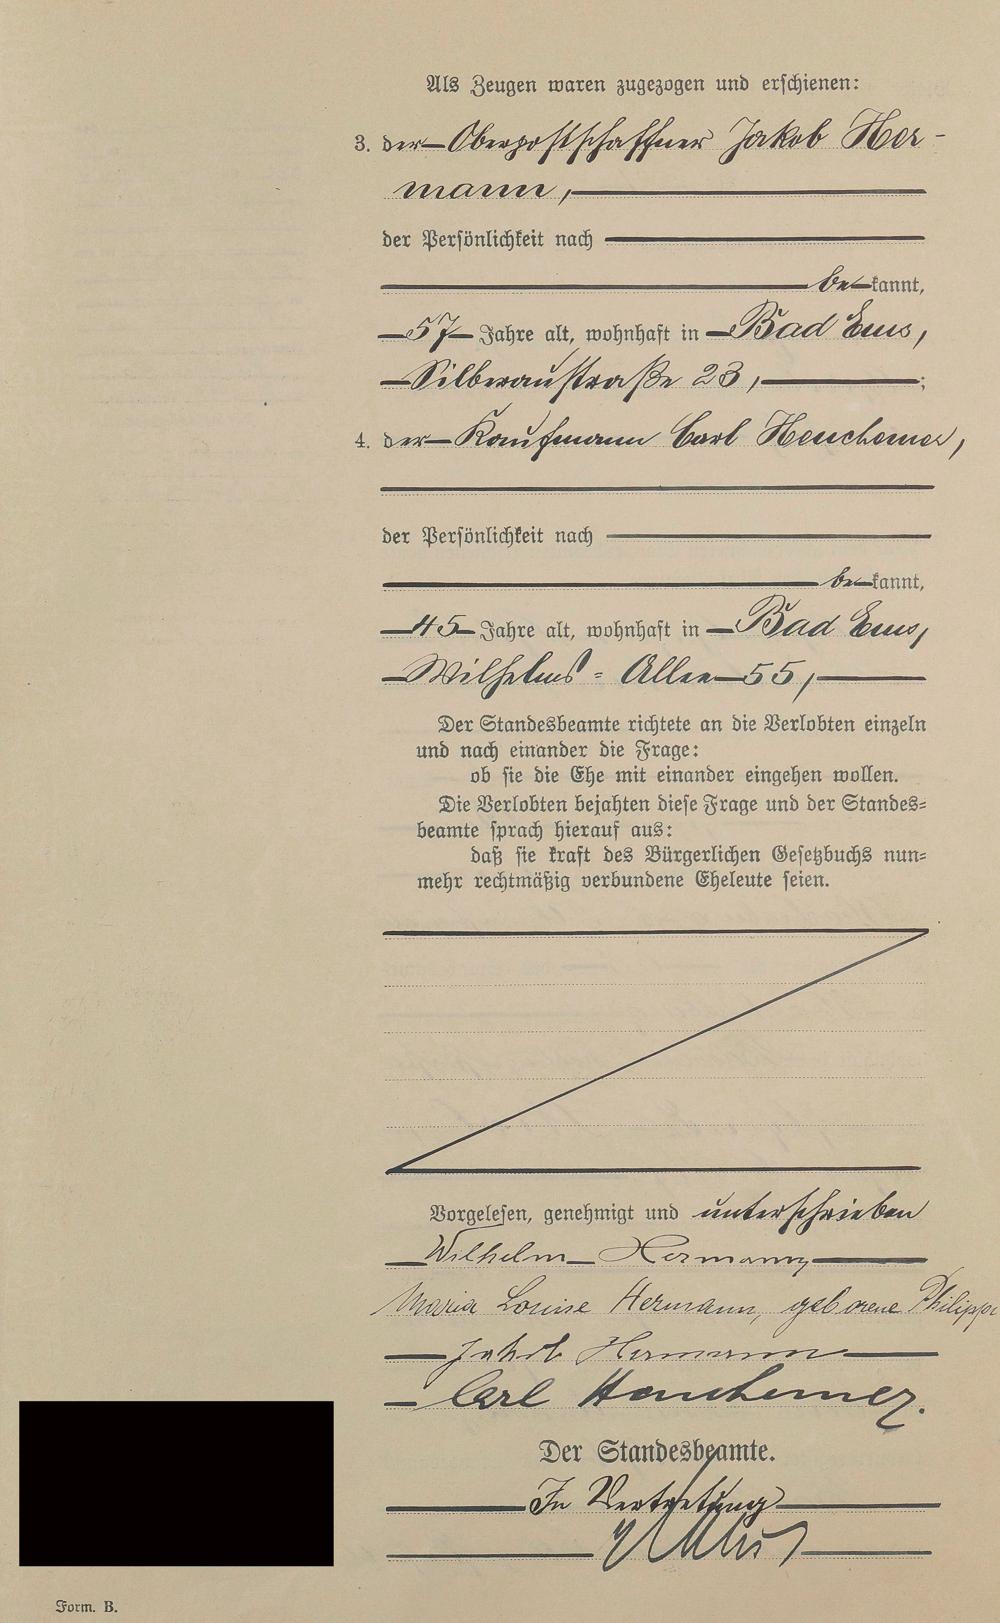 Als Zeugen waren zugezogen und erschienen:
3. der Oberpostschaffner Jakob Her-
mann,
der Persönlichkeit nach
be kannt,
57 Jahre alt, wohnhaft in Bad Ems,
Silberaustraße 23, ;
4. der Kaufmann Carl Heuchemer,
der Persönlichkeit nach
be kannt,
45 Jahre alt, wohnhaft in Bad Ems,
Wilhelms-Allee 55,
Der Standesbeamte richtete an die Verlobten einzeln
und nach einander die Frage:
ob sie die Ehe mit einander eingehen wollen.
Die Verlobten bejahten diese Frage und der Standes-
beamte sprach hierauf aus:
daß sie kraft des Bürgerlichen Gesetzbuchs nun-
mehr rechtmäßig verbundene Eheleute seien.
Vorgelesen, genehmigt und unterschrieben
Wilhelm Hermann
Maria Louise Hermann, geborene Philippi
Jakob Hermann
Carl Heuchemer.
Der Standesbeamte.
In Vertretung
Form. B.